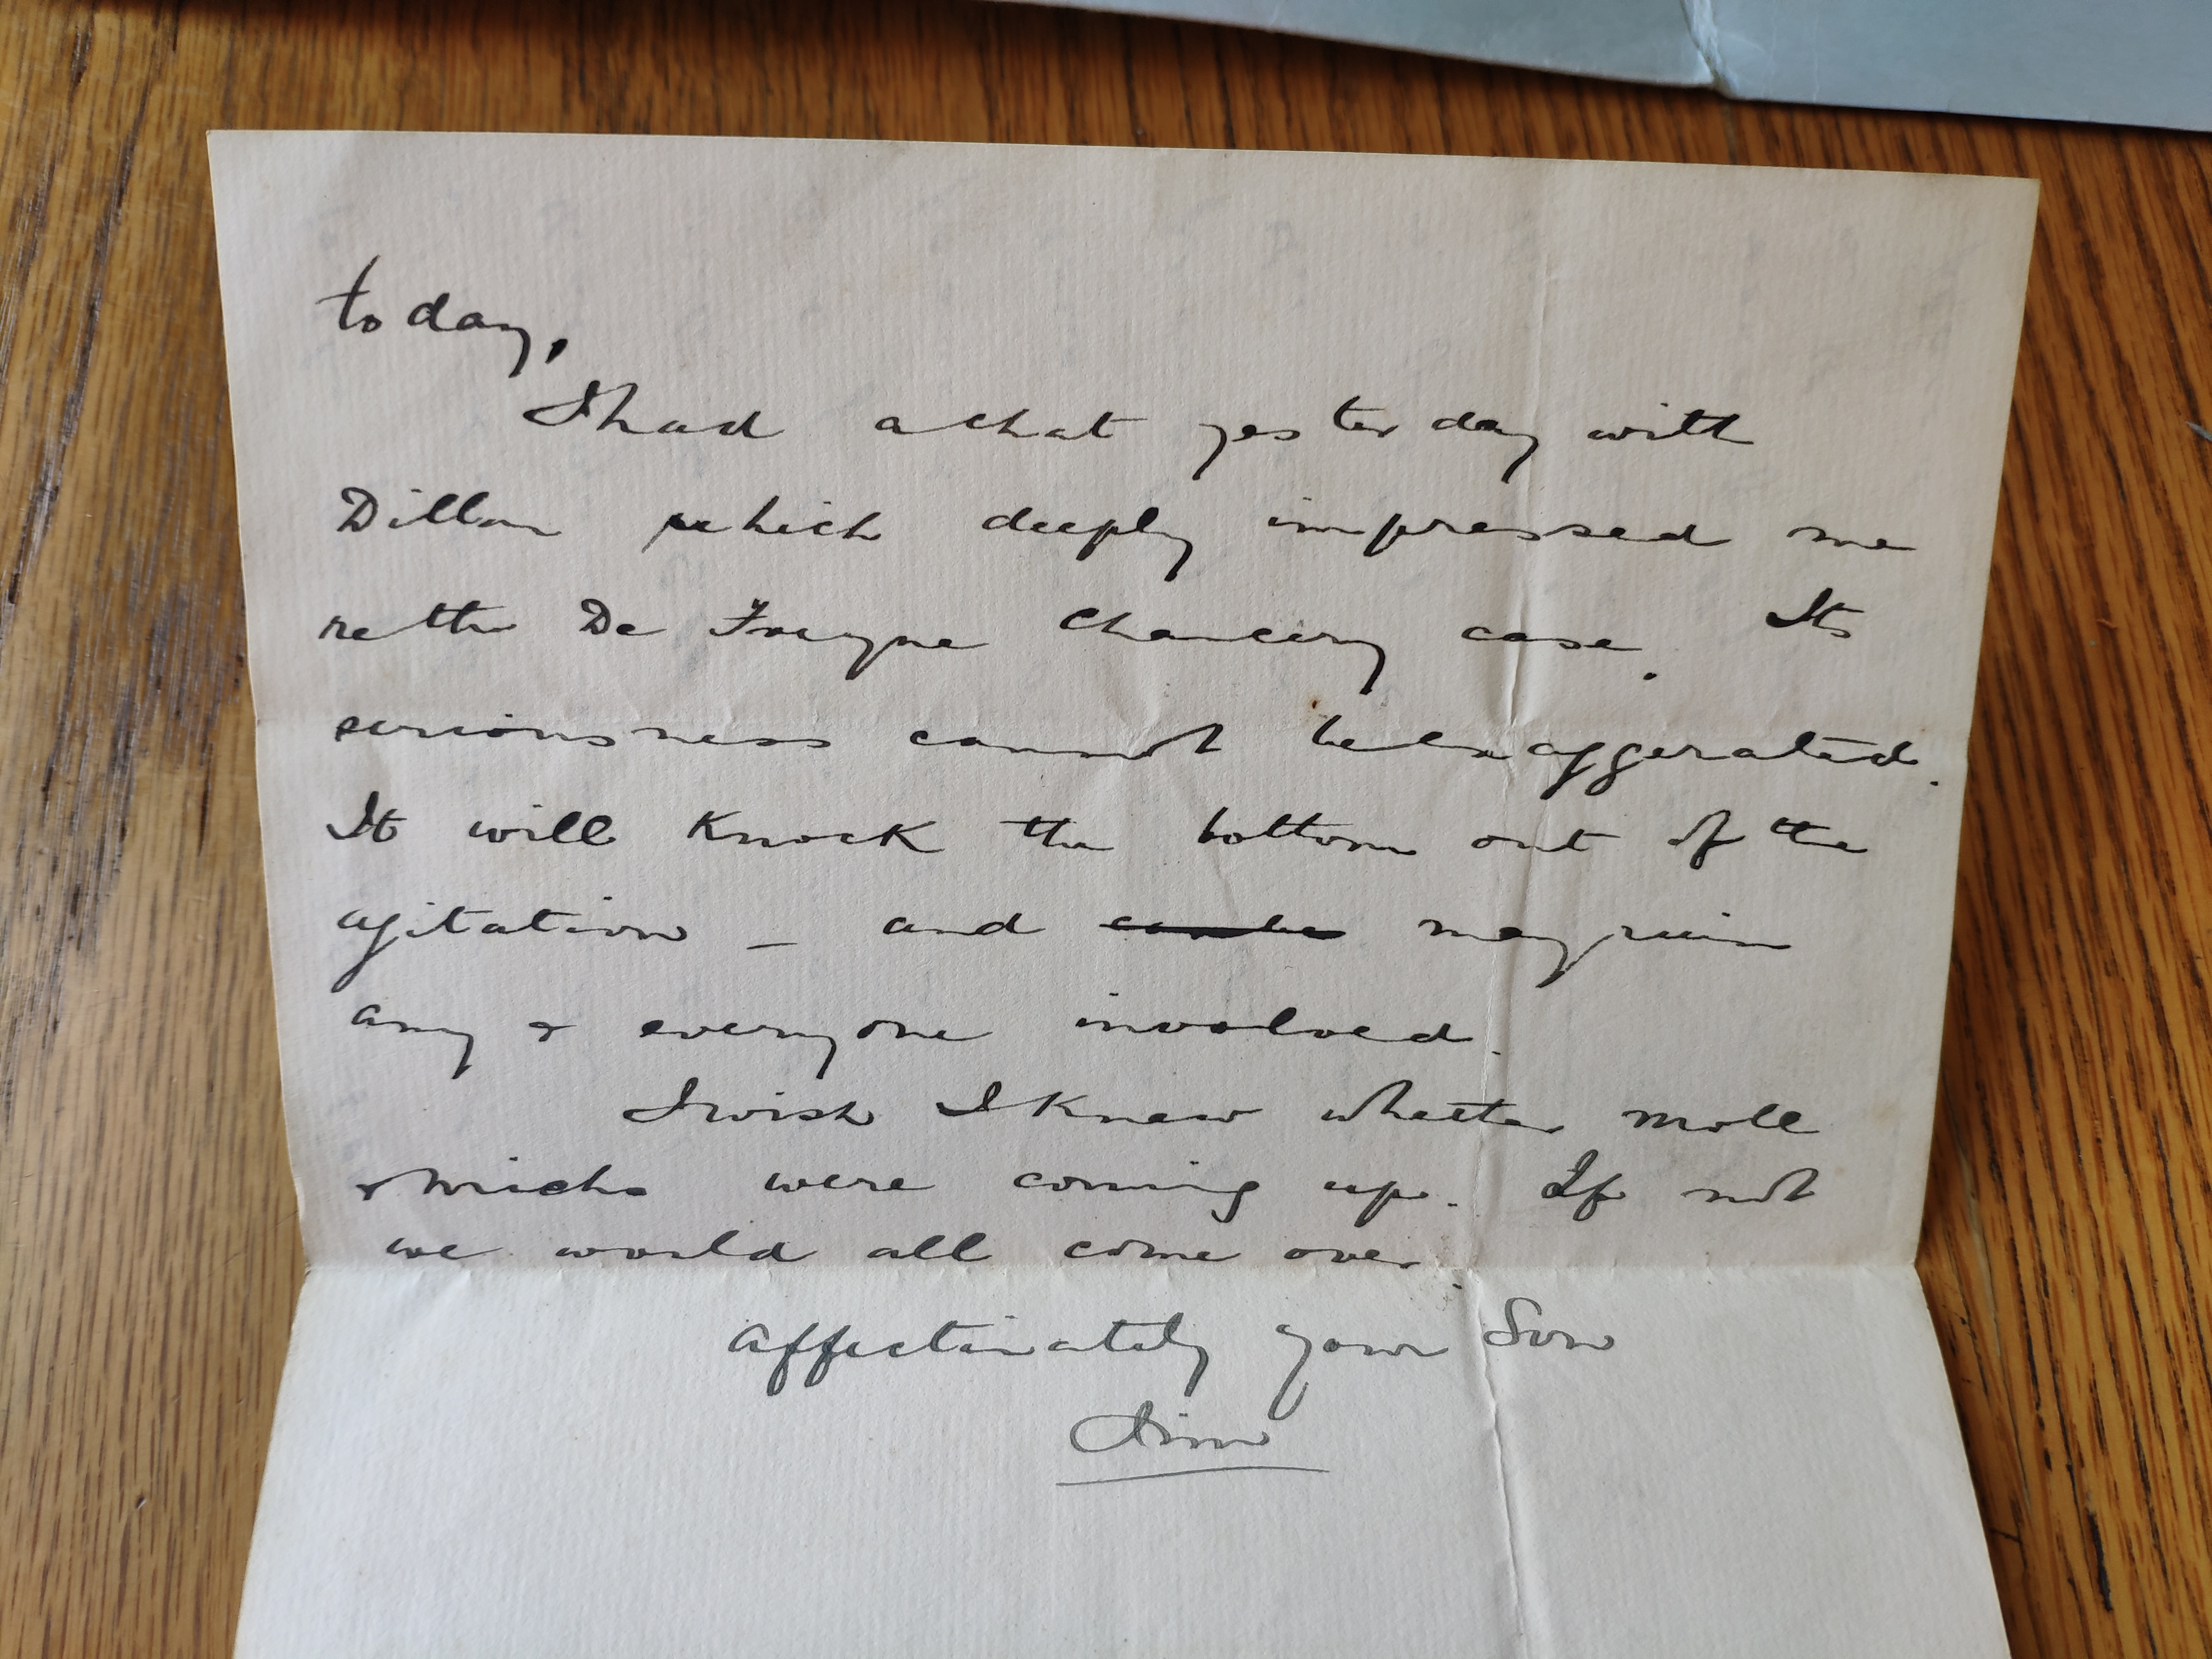 today,
I had a chat yesterday with
Dillon which deeply impressed me
re the De Freyne Chancery case. Its
seriousness cannot be exaggerated.
It will knock the bottom out of the
agitation – and may ruin
any & everyone involved.
I wish I knew whether Moll
& were coming up. If not
we would all come over.
Affectionately your Son
Jim